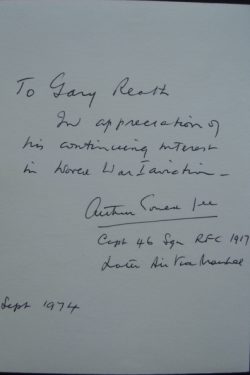 To Gary Reath
In appreciation of
his continuing interest
in World War I aviation –
Arthur Gould Lee
Capt 46 Sqn RFC 1917
Later Air Vice Marshal
Sept 1974